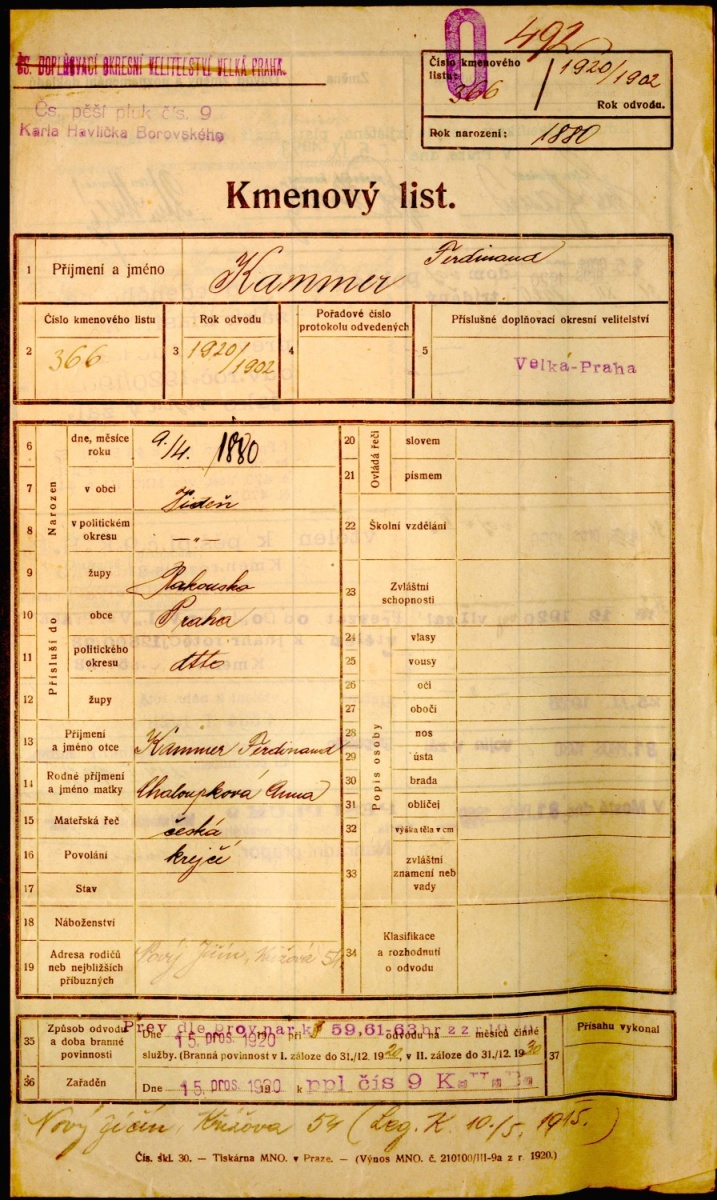 492
O
ČS. DOPLŇOVACÍ OKRESNÍ VELITELSTVÍ VELKÁ PRAHA.
Čs. pěší pluk čís. 9
Karla Havlíčka Borovského
Číslo kmenového listu: 366 / 1920/1902
Rok odvodu.
Rok narození: 1880
Kmenový list.
1 Příjmení a jméno Kammer Ferdinand
Číslo kmenového listu Rok odvodu Pořadové číslo protokolu odvedených Příslušné doplňovací okresní velitelství
2 366 3 1920/1902 4 5 Velká-Praha
Narozen
6 dne, měsíce roku 9./4. 1880
7 v obci Vídeň
8 v politickém okresu —„—
9 župy Rakousko
Přísluší do
10 obce Praha
11 politického okresu dtto
12 župy
13 Příjmení a jméno otce Kammer Ferdinand
14 Rodné příjmení a jméno matky Chaloupková Anna
15 Mateřská řeč česká
16 Povolání krejčí
17 Stav
18 Náboženství
19 Adresa rodičů neb nejbližších příbuzných Nový Jičín, Křížová 54
Ovládá řeči
20 slovem
21 písmem
22 Školní vzdělání
23 Zvláštní schopnosti
Popis osoby
24 vlasy
25 vousy
26 oči
27 obočí
28 nos
29 ústa
30 brada
31 obličej
32 výška těla v cm
33 zvláštní znamení neb vady
34 Klasifikace a rozhodnutí o odvodu
35 Způsob odvodu a doba branné povinnosti
Prev dle prov. nar. k § 59, 61-63 br z z r
Dne 15. pros. 1920 při odvodu na měsíců činné
služby. (Branná povinnost v I. záloze do 31./12. 1920, v II. záloze do 31./12. 1930
37 Přísahu vykonal
36 Zařaděn Dne 15. pros. 1920 k ppl čís 9 K
Nový Jičín, Křížova 54 (Leg. K. 10./5. 1915.)
Čís. skl. 30. — Tiskárna MNO. v Praze. — (Výnos MNO. č. 210100/III-9a z r. 1920.)